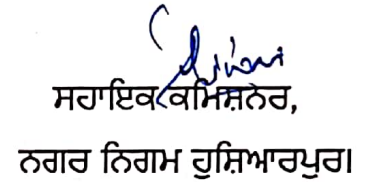 ਸਹਾਇਕ ਕਮਿਸ਼ਨਰ,
ਨਗਰ ਨਿਗਮ ਹੁਸ਼ਿਆਰਪੁਰ।